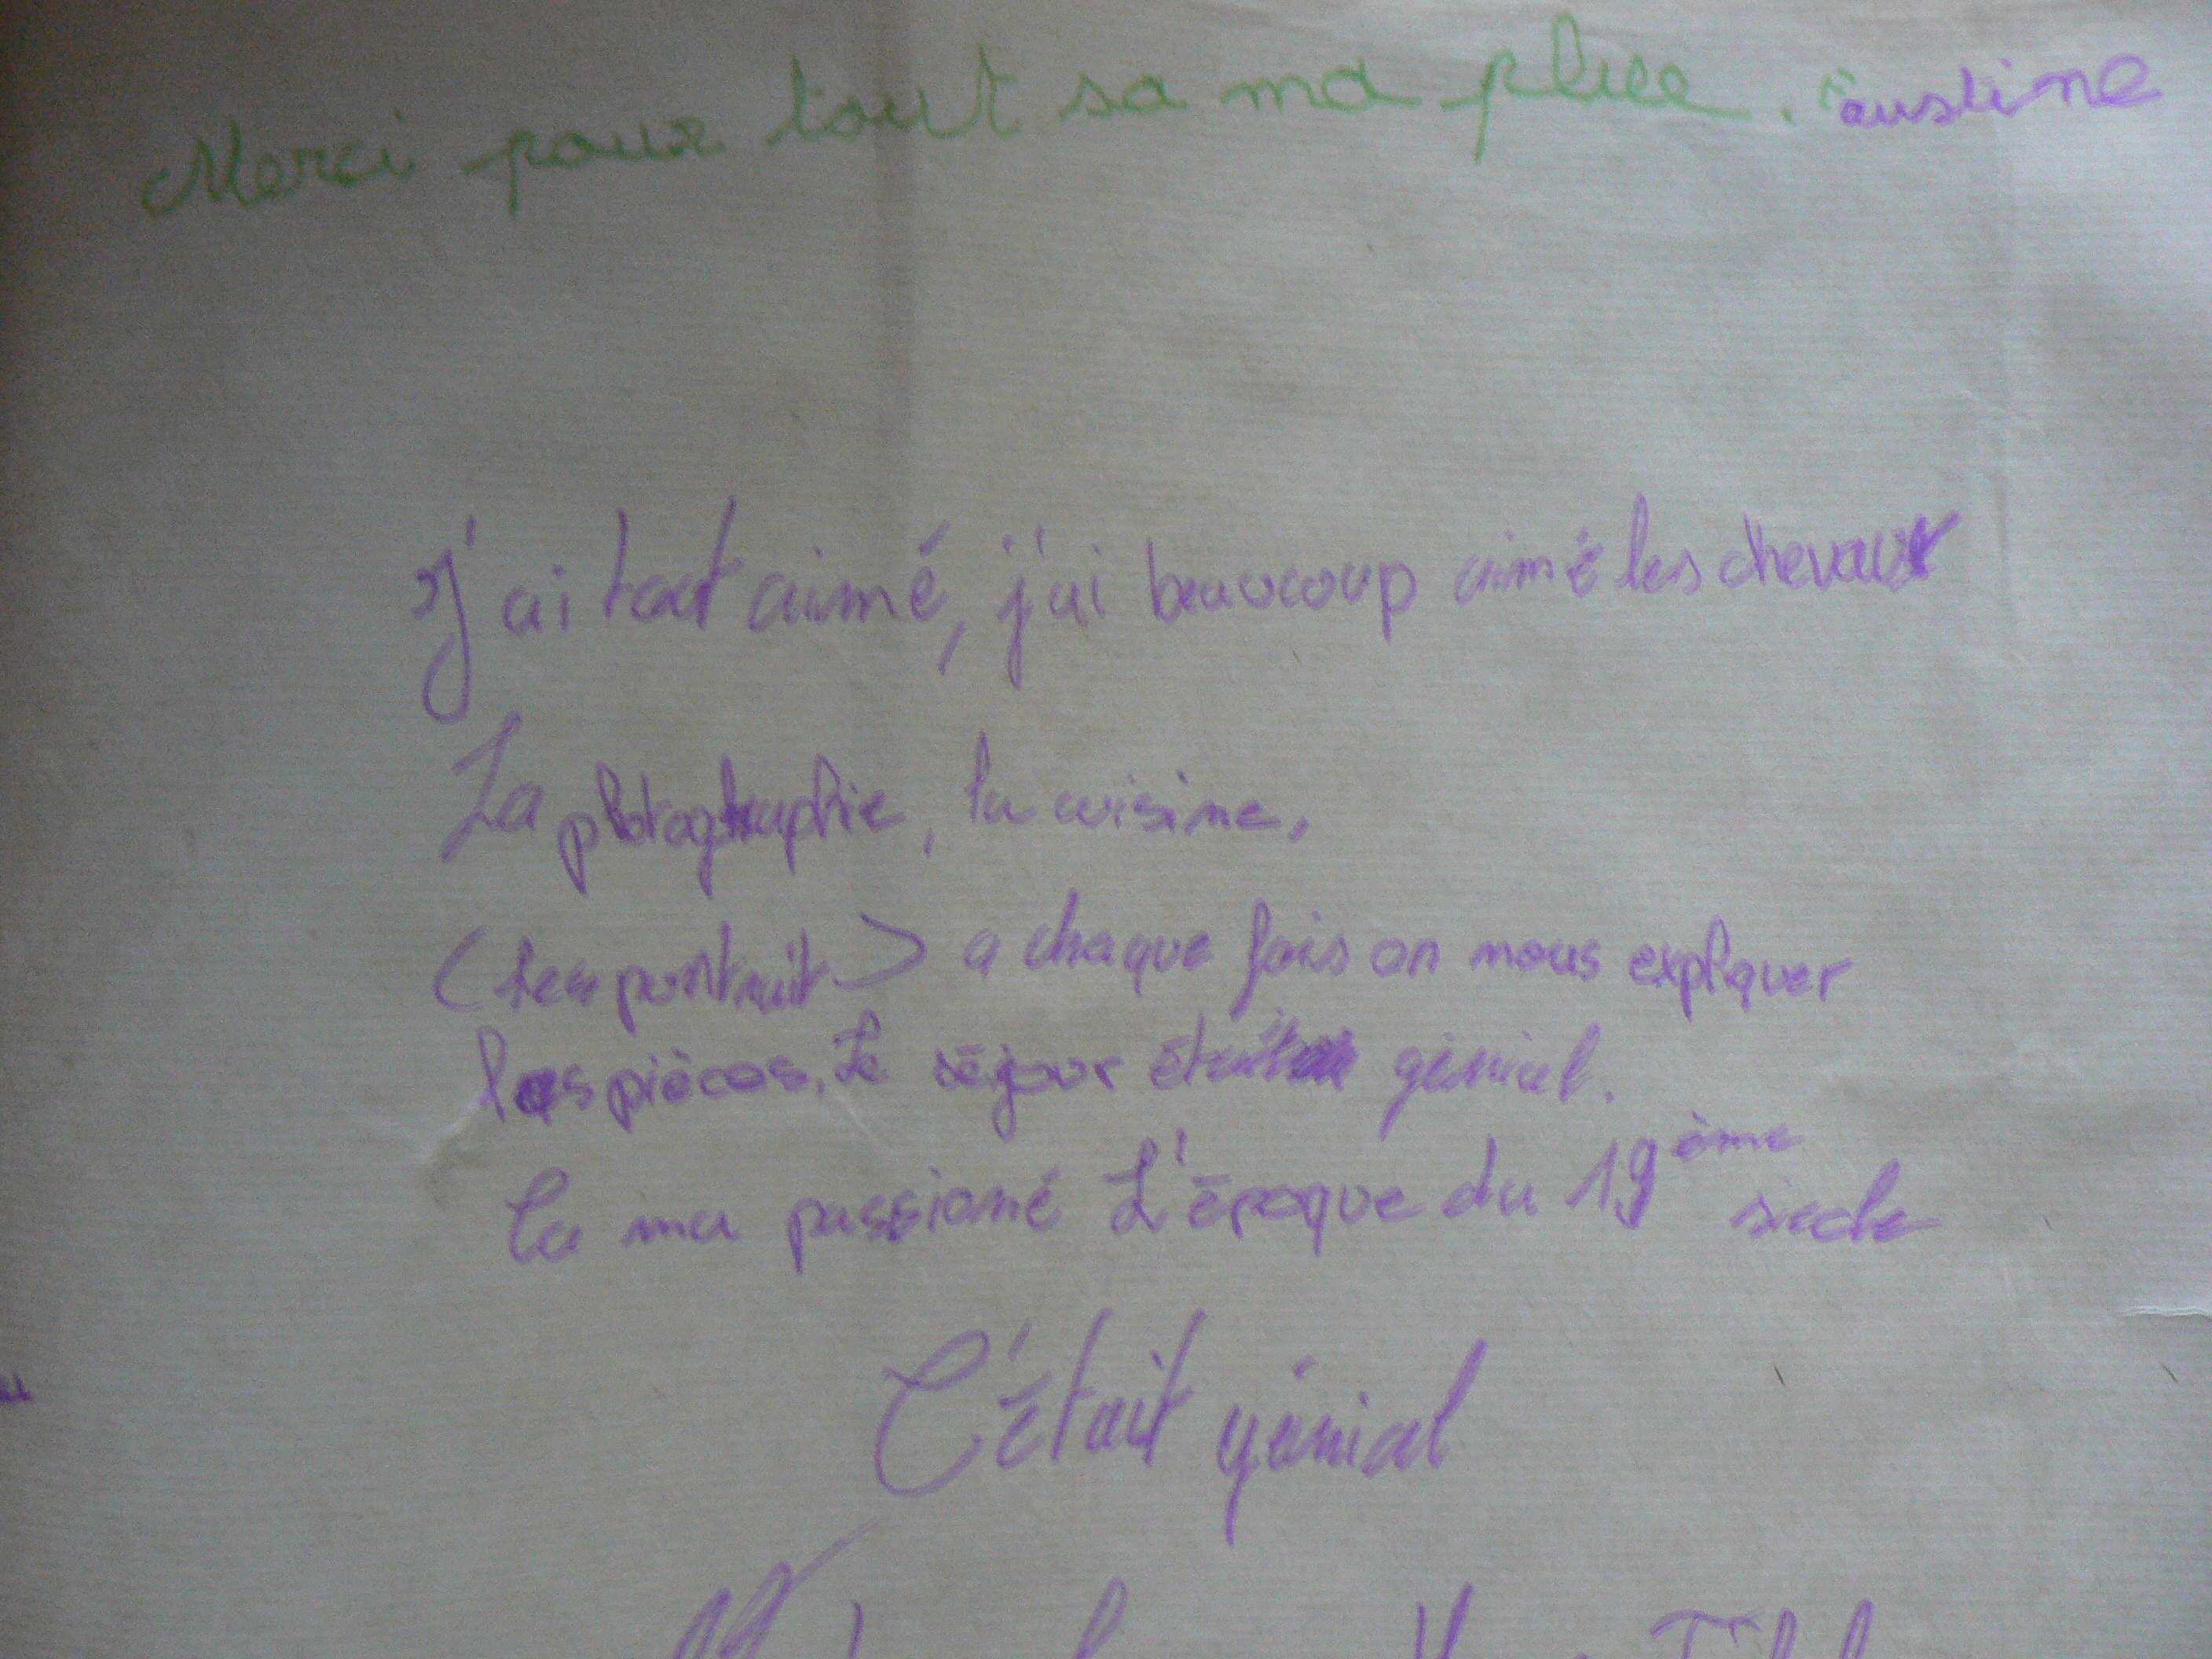 Merci pour tout sa ma pluee. Faustine
J'ai tout aimé, j'ai beaucoup aimé les chevaux
La photographie, la cuisine.
(Les portrait) a chaque fois on nous expliquer
les pièces. Le séjour était génial.
Ca ma passioné L'époque du 19ème siecle
C'était génial